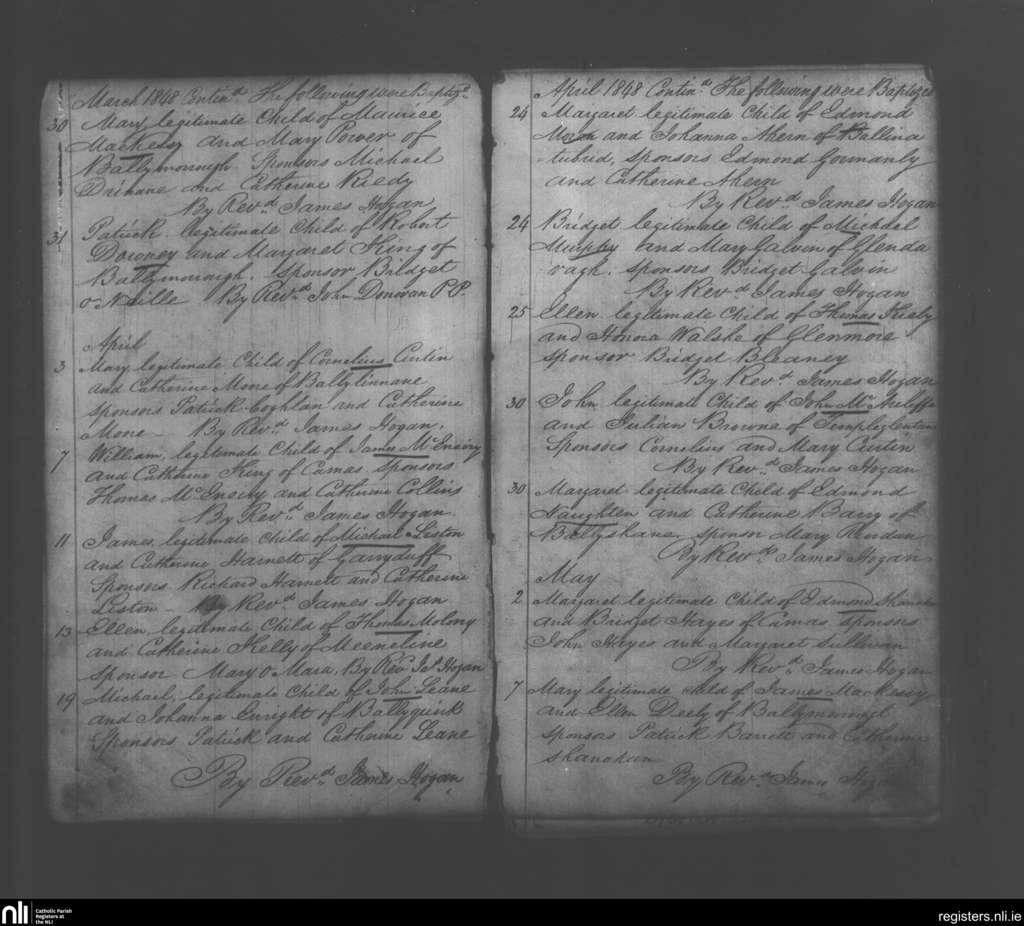 March 1848 Contin.d The following were Baptiz.d
30 Mary legitimate Child of Maurice
Mackessy and Mary Power of
Ballymorough Sponsors Michael
Drinane and Catherine Riedy
By Rev.d James Hogan
31 Patrick legitimate Child of Robert
Downey and Margaret King of
Ballymorough. Sponsor Bridget
O-Neille By Rev.d John Donovan P.P.
April
3 Mary legitimate Child of Cornelius Curtin
and Catherine Mone of Ballylinnane
Sponsors Patrick Coghlan and Catherine
Mone By Rev.d James Hogan.
7 William, legitimate Child of James McEneiry
and Catherine King of Camas Sponsors
Thomas McEneiry and Catherine Collins
By Rev.d James Hogan.
11 James, legitimate Child of Michael Liston
and Catherine Harnett of Garryduff
Sponsors Richard Harnett and Catherine
Liston - By Rev.d James Hogan
13 Ellen, legitimate Child of Thomas Molony
and Catherine Kelly of Meeneline
Sponsor Mary O Mara, By Rev. Js. Hogan
19 Michael, legitimate Child of John Leane
and Johanna Enright of Ballyquirk
Sponsors Patrick and Catherine Leane
By Rev.d James Hogan
April 1848 Contin.d The following were Baptized
24 Margaret legitimate Child of Edmond
and Johanna Ahern of Ballina
-tubrid, sponsors Edmond Gormanly
and Catherine Ahern
By Rev.d James Hogan
24 Bridget legitimate Child of Michael
Murphy and Mary Galvin of Glenda
ragh. sponsors Bridget Galvin
By Rev.d James Hogan
25 Ellen legitimate Child of Thomas Kiely
and Honora Walshe of Glenmore
sponsor Bridget Bleaney
By Rev.d James Hogan
30 John legitimate Child of John McAuliffe
and Julian Browne of Templeglentan
Sponsors Cornelius and Mary Curtin
By Rev.d James Hogan
30 Margaret legitimate Child of Edmond
Naughten and Catherine Barry of
Ballyshane, sponsor Mary Riordan
By Rev.d James Hogan
May
2 Margaret legitimate Child of Edmond
and Bridget Hayes of Camas sponsors
John Hayes and Margaret Sullivan
By Rev.d James Hogan
7 Mary legitimate child of James Mackessy
and Ellen Deely of
sponsors Patrick Barrett and Catherine
Shanahan
By Rev.d James Hogan
nli Catholic Parish
Registers at
the NLI
registers.nli.ie